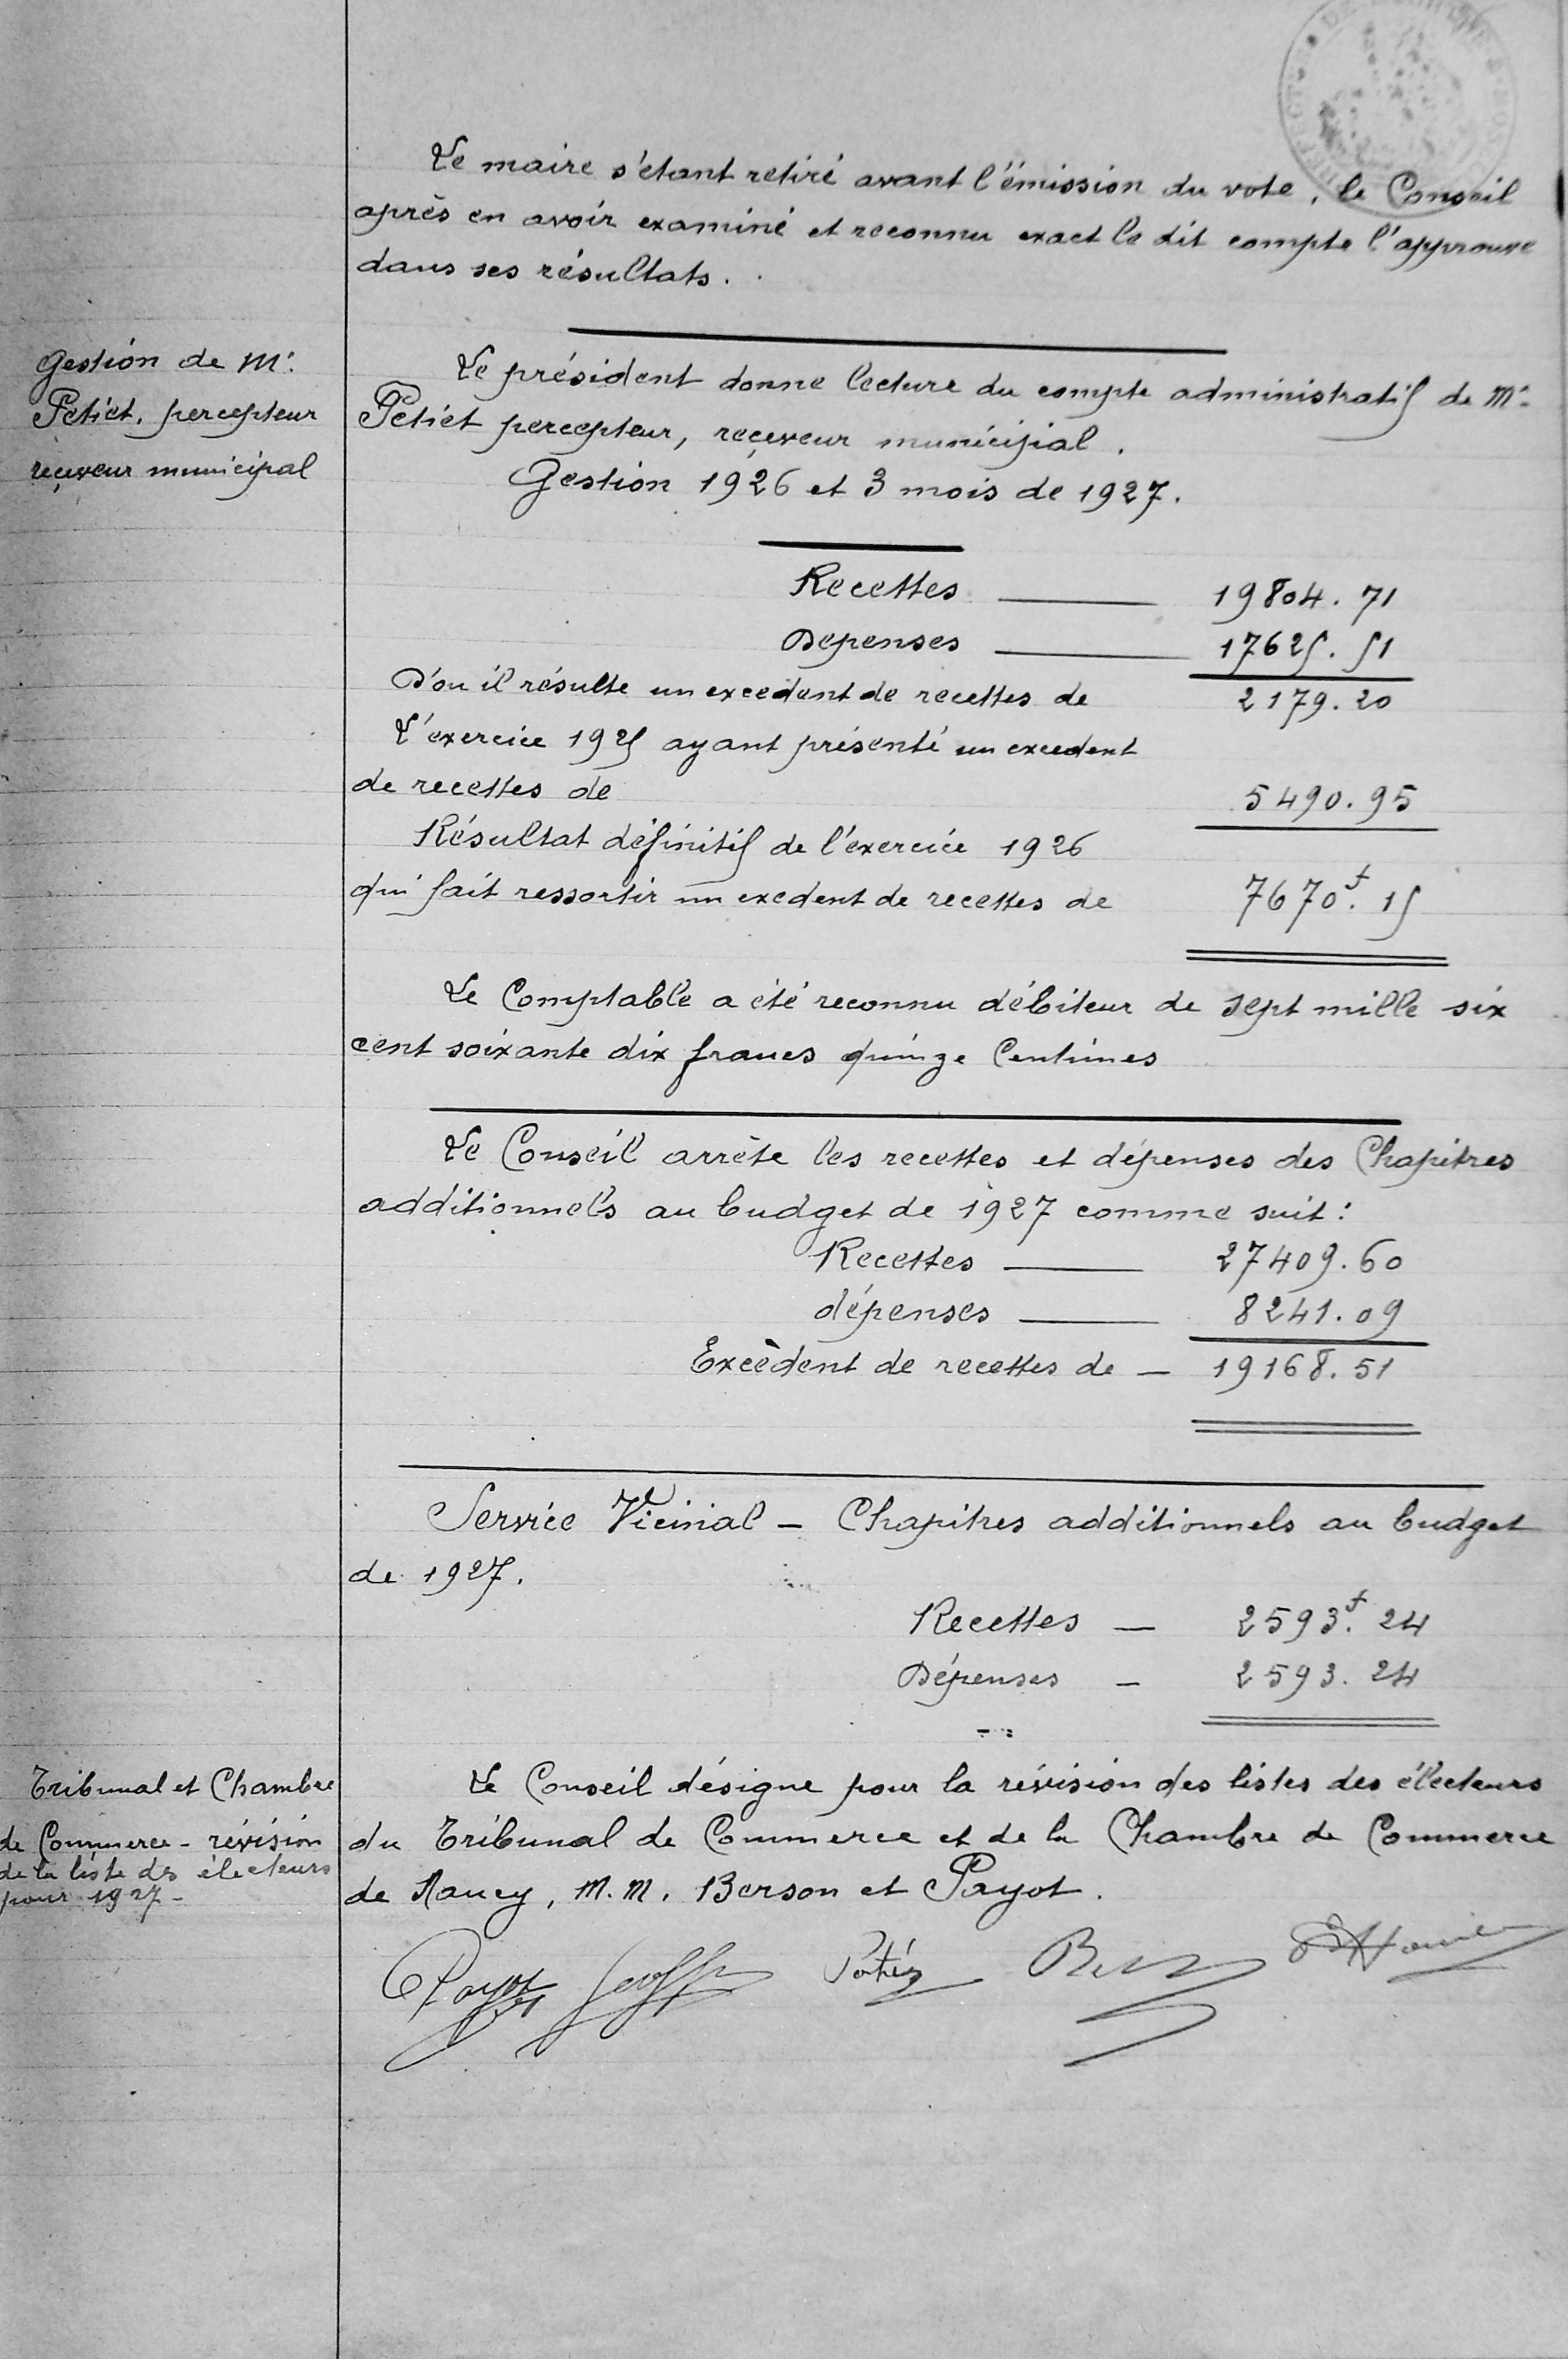 Le maire s'étant retiré avant l'émission du vote, le Conseil
après en avoir examiné et reconnu exact le dit compte l'approuve
dans ses résultats.
Gestion de Mr.
Petiet, percepteur
reçeveur municipal
Le président donne lecture du compte administratif de Mr.
Petiet percepteur, reçeveur municipal.
Gestion 1926 et 3 mois de 1927.
Recettes — 19804.71
Depenses — 17625.51
D'ou il résulte un excedent de recettes de 2179.20
L'exercice 1925 ayant présenté un excedent
de recettes de 5490.95
Résultat définitif de l'exercice 1926
qui fait ressortir un exedent de recettes de 7670f.15
Le Comptable a été reconnu débiteur de sept mille six
cent soixante dix francs quinze Centimes
Le Conseil arrête les recettes et dépenses des Chapitres
additionnels au budget de 1927 comme suit :
Recettes — 27409.60
dépenses — 8241.09
Excèdent de recettes de — 19168.51
Service Vicinal — Chapitres additionnels au budget
de 1927.
Recettes — 2593f.24
Dépenses — 2593.24
Tribunal et Chambre
de Commerce - révision
de la liste des électeurs
pour 1927 -
Le Conseil désigne pour la révision des listes des électeurs
du Tribunal de Commerce et de la Chambre de Commerce
de Nancy, M.M. Berson et Payot.
Payot